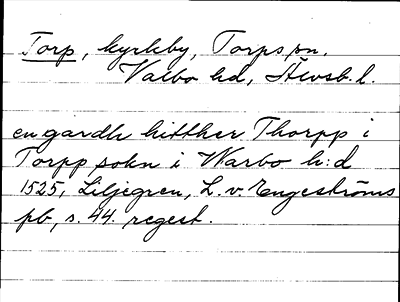 Torp, kyrkby, Torps sn.
Valbo hd, Älvsb. l.
en gardh hitther Thorpp i
Torpp sokn i Warbo h:d
1525, Liljegren, L. v. Engeströms
pb, s. 44. regest.